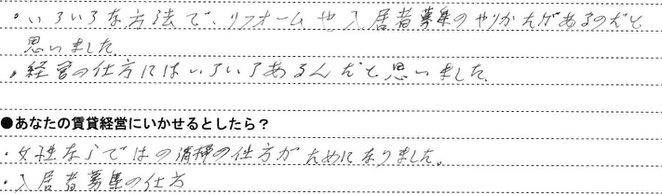 ・いろいろな方法で、リフォームや入居者募集のやりかたがあるのだと
思いました
・経営の仕方にはいろいろあるんだと思いました。
●あなたの賃貸経営にいかせるとしたら？
・女性ならではの清掃の仕方がためになりました。
・入居者募集の仕方